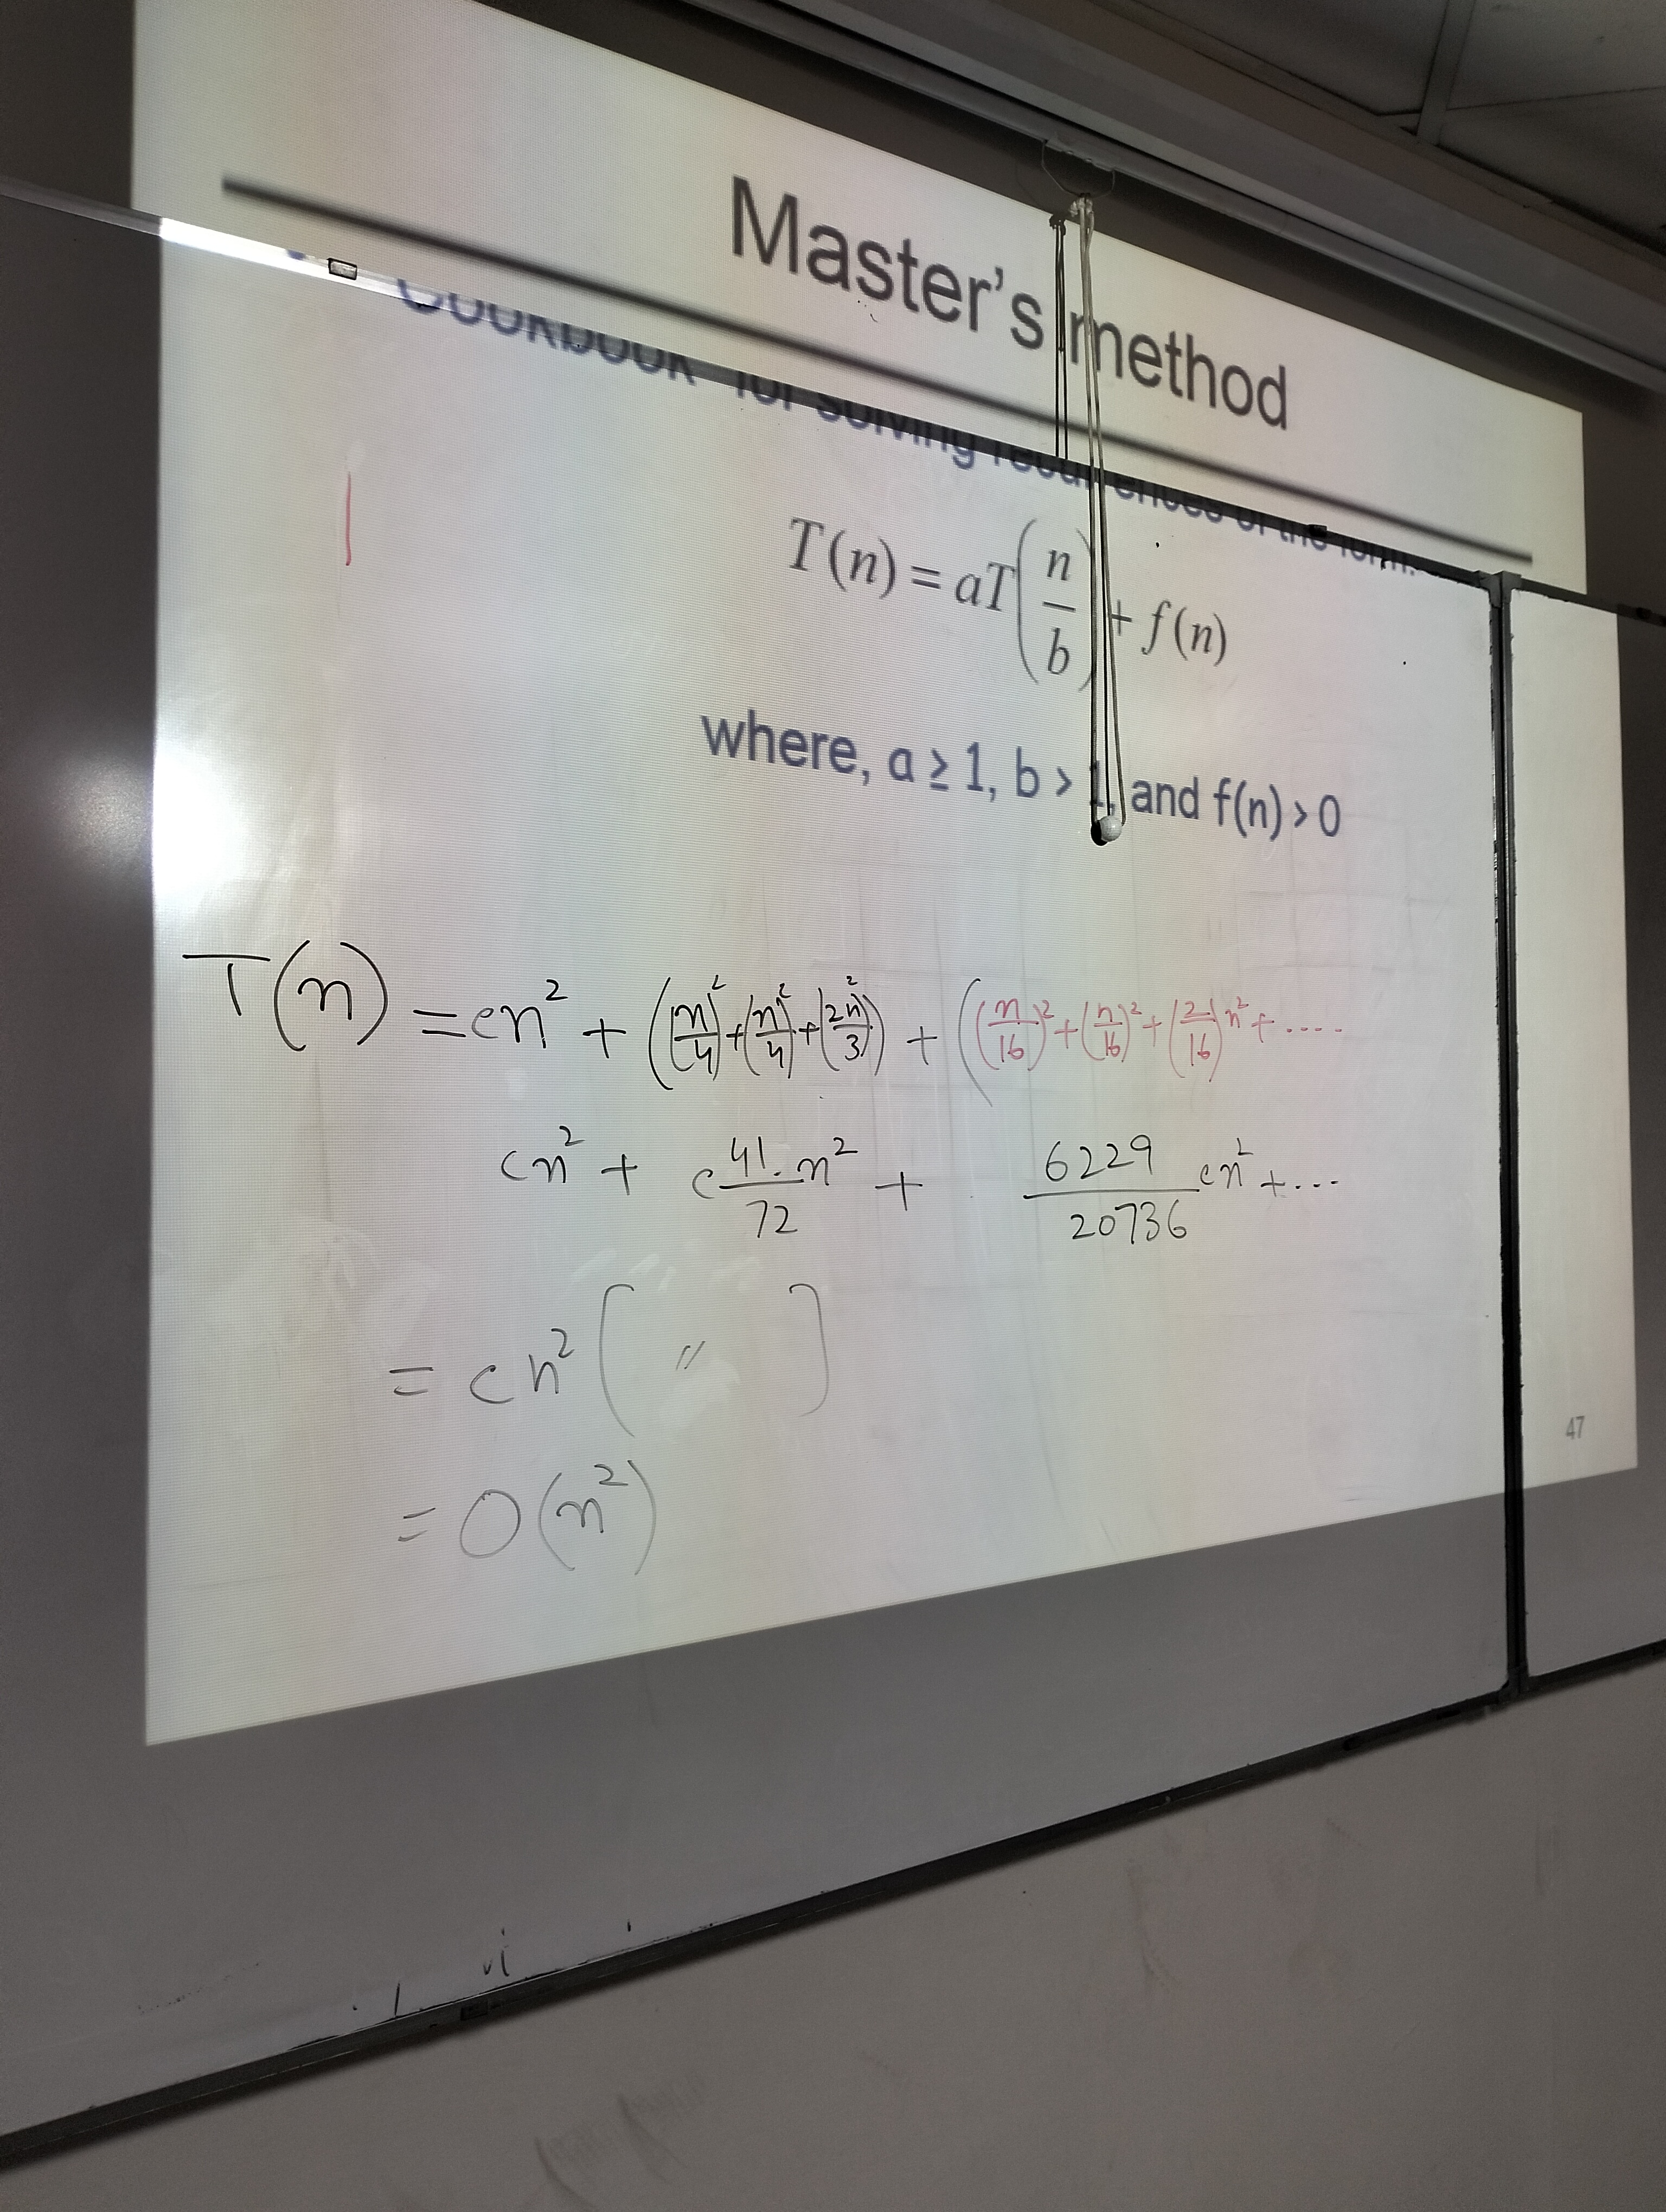 Master's method
Cookbook for solving recurrences of the form:
T(n) = aT(n/b) + f(n)
where, a ≥ 1, b > 1, and f(n) > 0
T(n) = cn² + ((n/4)² + (n/4)² + (2n/3)²) + ((n/16)² + (n/16)² + (2/16)n² + ....
cn² + c 41/72 . n² + 6229/20736 cn² + ...
= cn² [ " ]
= O(n²)
47